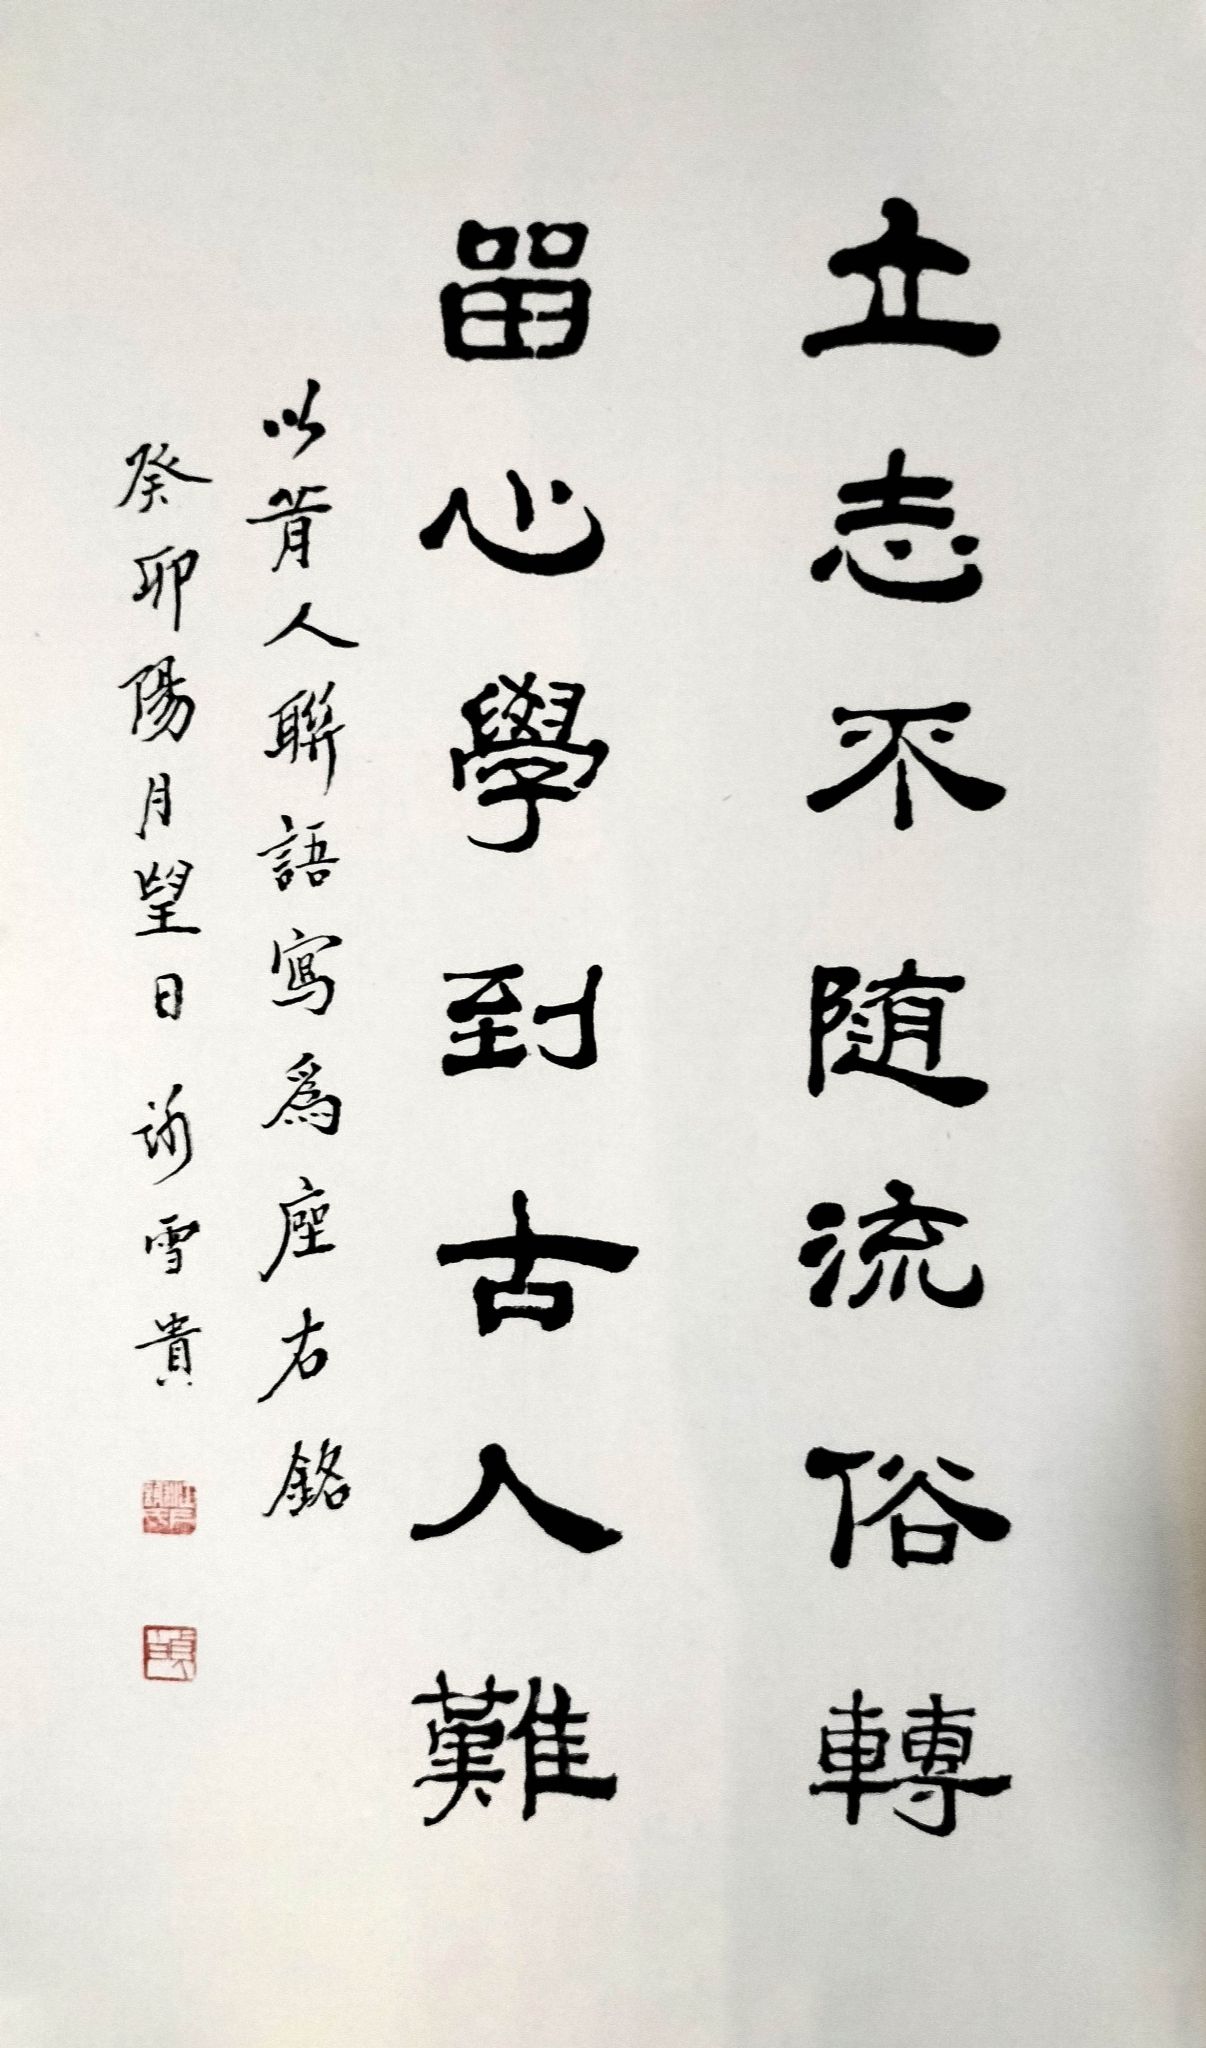 立志不随流俗轉
留心學到古人難
以昔人聯語寫爲座右銘
癸卯陽月望日雪貴